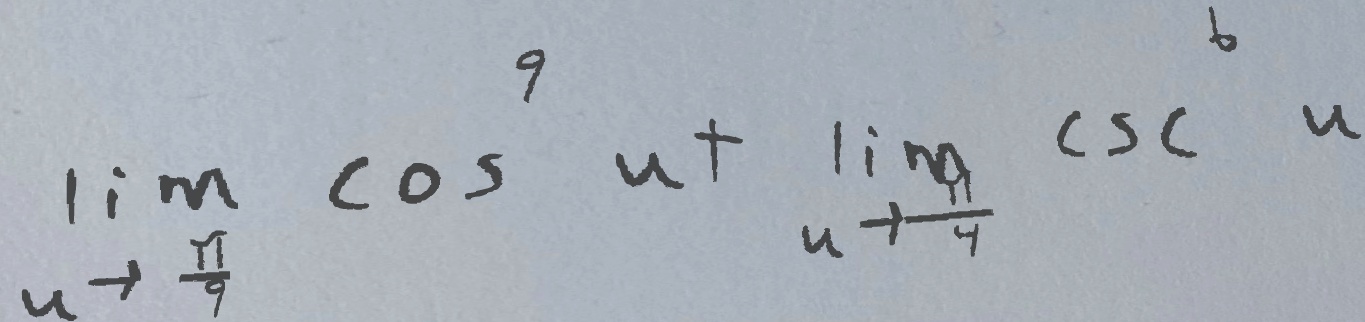 \lim_{u \to \frac{\pi}{9}} \cos^9 u + \lim_{u \to \frac{\pi}{4}} \csc^6 u